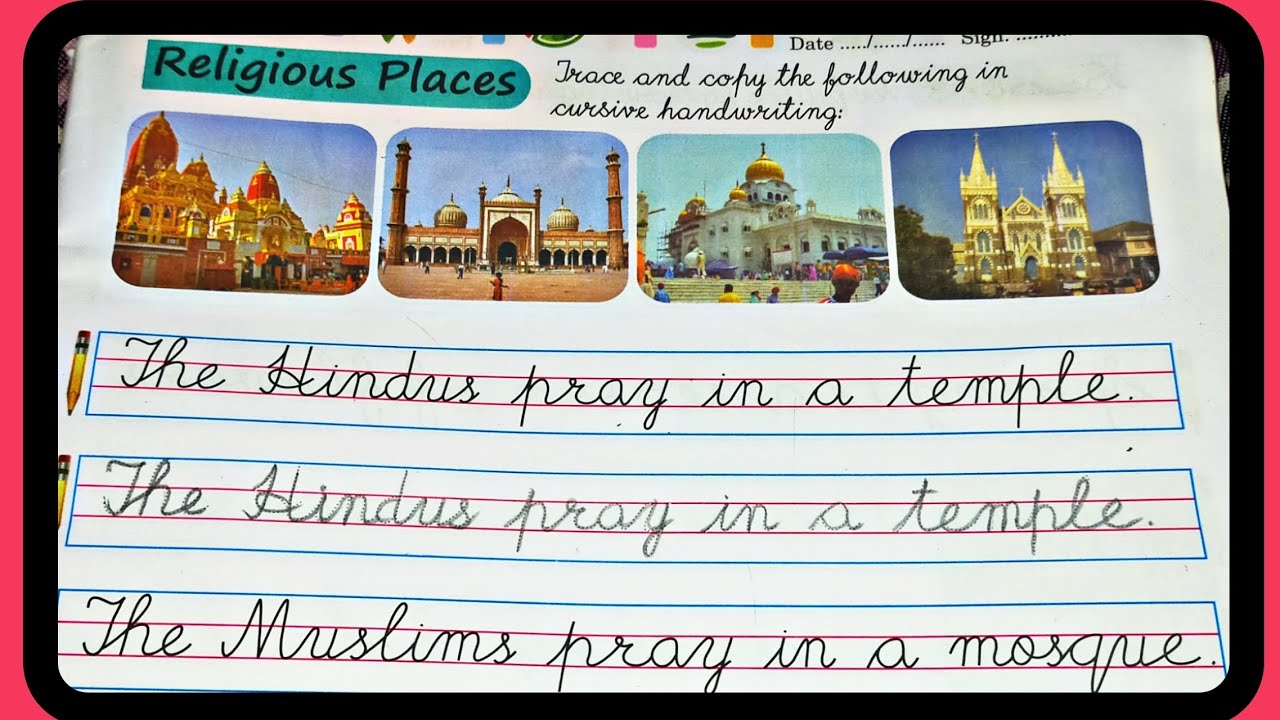 Date ...../....../...... Sign. ..........
Religious Places
Trace and copy the following in
cursive handwriting:
The Hindus pray in a temple.
The Hindus pray in a temple.
The Muslims pray in a mosque.